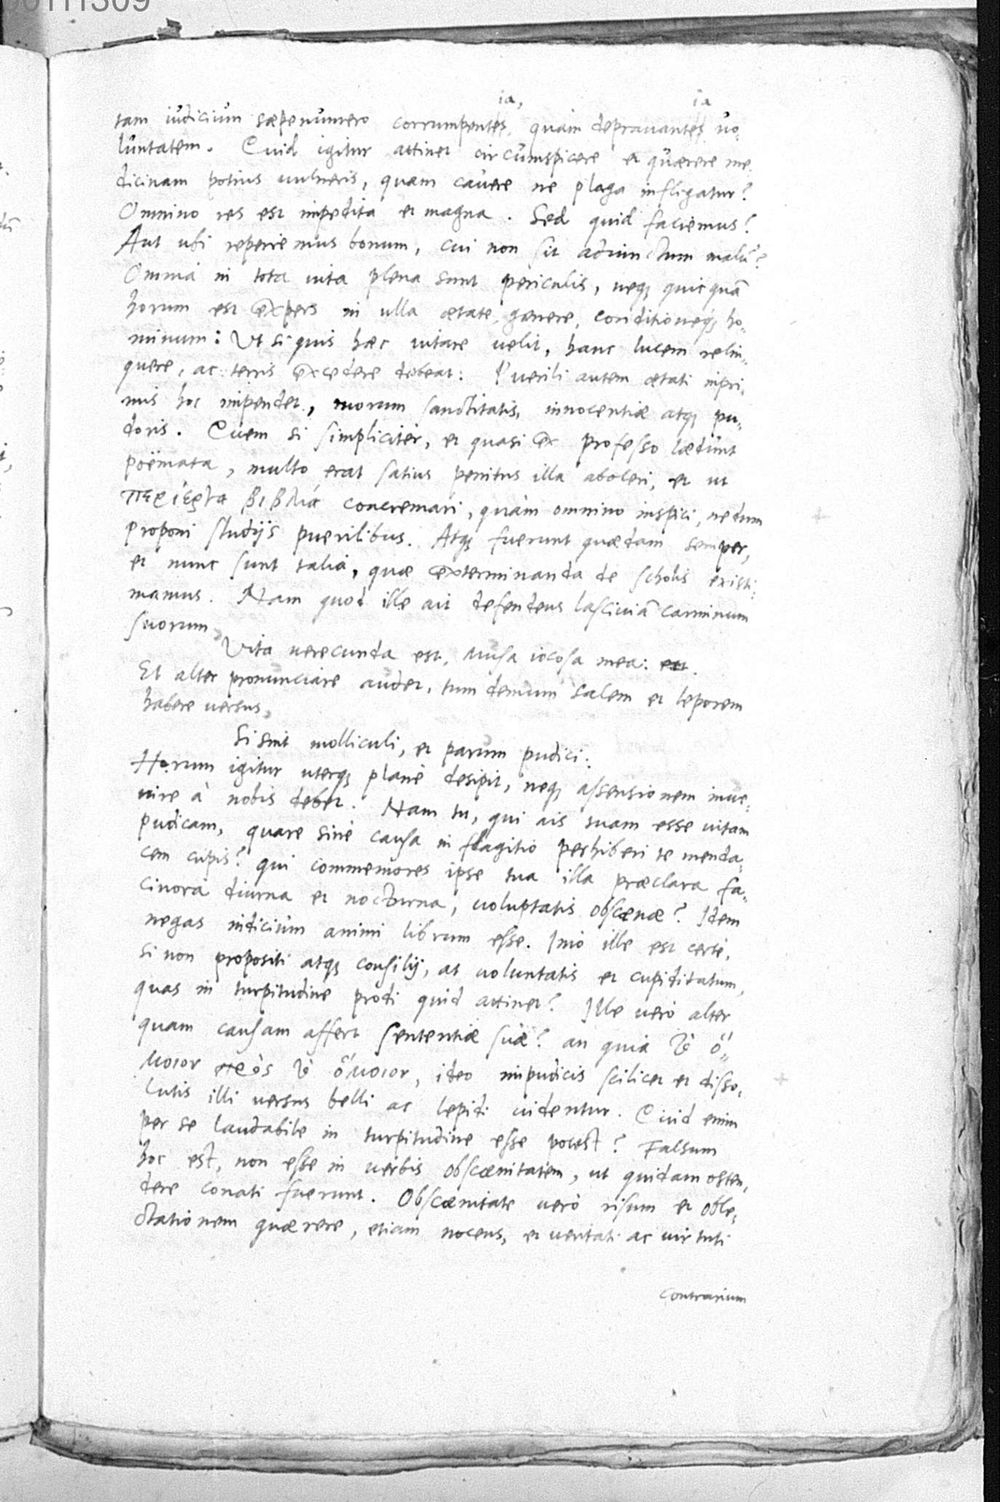 tam iudicium sæpenumero corrumpentes ia, quàm deprauantes ia uo-
luntatem. Quid igitur attinet circumspicere et quærere me
dicinam potius vulneris, quam cauere ne plaga infligatur?
Omnino res est impedita et magna. Sed quid faciemus?
Aut ubi reperiemus bonum, cui non sit adiunctum malũ?
Omnia in tota uita plena sunt periculis, neq; quicquã
horum est expers in ulla ætate, genere, conditioneq; ho-
minum: Vt si quis hæc uitare uelit, hanc lucem relin-
quere, ac terris excedere debeat. Puerili autem ætati inpri-
mis hoc impendet, morum sanctitatis, innocentiæ atq; pu-
doris. Quem si simpliciter, et quasi ex professo lædunt
poëmata, multo erat satius penitus illa aboleri, et ut
περίεργα βιβλία concremari, quàm omnino inspici, nedum
proponi studijs puerilibus. Atq; fuerunt quædam semper,
et nunc sunt talia, quæ exterminanda de scholis existi-
mamus. Nam quod ille ait defendens lasciuiã carminum
suorum,
Vita uerecunda est, musa iocosa mea:
Et alter pronunciare audet, tum demum salem et leporem
habere uersus,
Si sint molliculi, et parum pudici:
Horum igitur uterq; planè desipit, neq; assensionem inue-
nire à nobis debet. Nam tu, qui ais tuam esse uitam
pudicam, quare sine causa in flagitio perhiberi te menda-
cem cupis? qui commemores ipse tua illa præclara fa-
cinora diurna et nocturna, uoluptatis obscænæ? Idem
negas indicium animi librum esse. Imò ille est certè,
si non propositi atq; consilij, at uoluntatis et cupiditatum,
quas in turpitudine prodi quid attinet? Ille uerò alter
quam causam affert sententiæ suæ? an quia τὸ ὅ-
μοιον πρὸς τὸ ὅμοιον, ideo impudicis scilicet et disso-
lutis illi uersus belli ac lepidi uidentur. Quid enim
per se laudabile in turpitudine esse potest? Falsum
hoc est, non esse in uerbis obscænitatem, ut quidam osten-
dere conati fuerunt. Obscænitate uerò risum et oble-
ctationem quærere, etiam nocens, et ueritati ac uirtuti
contrarium